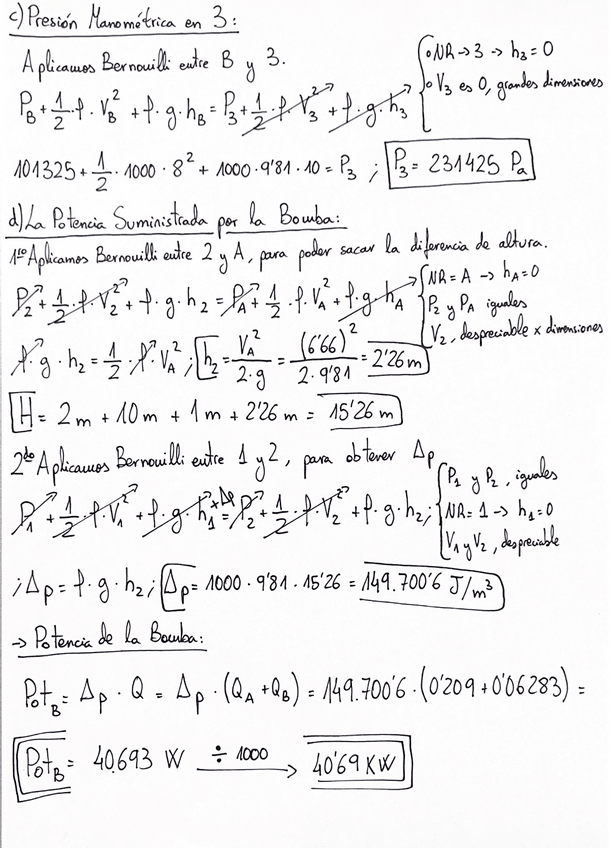 c) Presión Manométrica en 3:
Aplicamos Bernouilli entre B y 3.
∘ NR → 3 → h₃ = 0
∘ V₃ es 0, grandes dimensiones
P_B + 1/2 · ρ · V_B² + ρ · g · h_B = P₃ + 1/2 · ρ · V₃² + ρ · g · h₃
101325 + 1/2 · 1000 · 8² + 1000 · 9'81 · 10 = P₃ ; P₃ = 231425 Pa
d) La Potencia Suministrada por la Bomba:
1º Aplicamos Bernouilli entre 2 y A, para poder sacar la diferencia de altura.
P₂ + 1/2 · ρ · V₂² + ρ · g · h₂ = P_A + 1/2 · ρ · V_A² + ρ · g · h_A
NR = A → h_A = 0
P₂ y P_A iguales
V₂, despreciable x dimensiones
ρ · g · h₂ = 1/2 · ρ · V_A² ; h₂ = V_A² / 2 · g = (6'66)² / 2 · 9'81 = 2'26 m
H = 2 m + 10 m + 1 m + 2'26 m = 15'26 m
2do Aplicamos Bernouilli entre 1 y 2, para obtener Δp
P₁ + 1/2 · ρ · V₁² + ρ · g · h₁ + Δp = P₂ + 1/2 · ρ · V₂² + ρ · g · h₂ ;
P₁ y P₂, iguales
NR = 1 → h₁ = 0
V₁ y V₂, despreciable
; Δp = ρ · g · h₂ ; Δp = 1000 · 9'81 · 15'26 = 149.700'6 J/m³
→ Potencia de la Bomba:
Pot_B = Δp · Q = Δp · (Q_A + Q_B) = 149.700'6 · (0'209 + 0'06283) =
Pot_B = 40.693 W ÷ 1000 → 40'69 KW